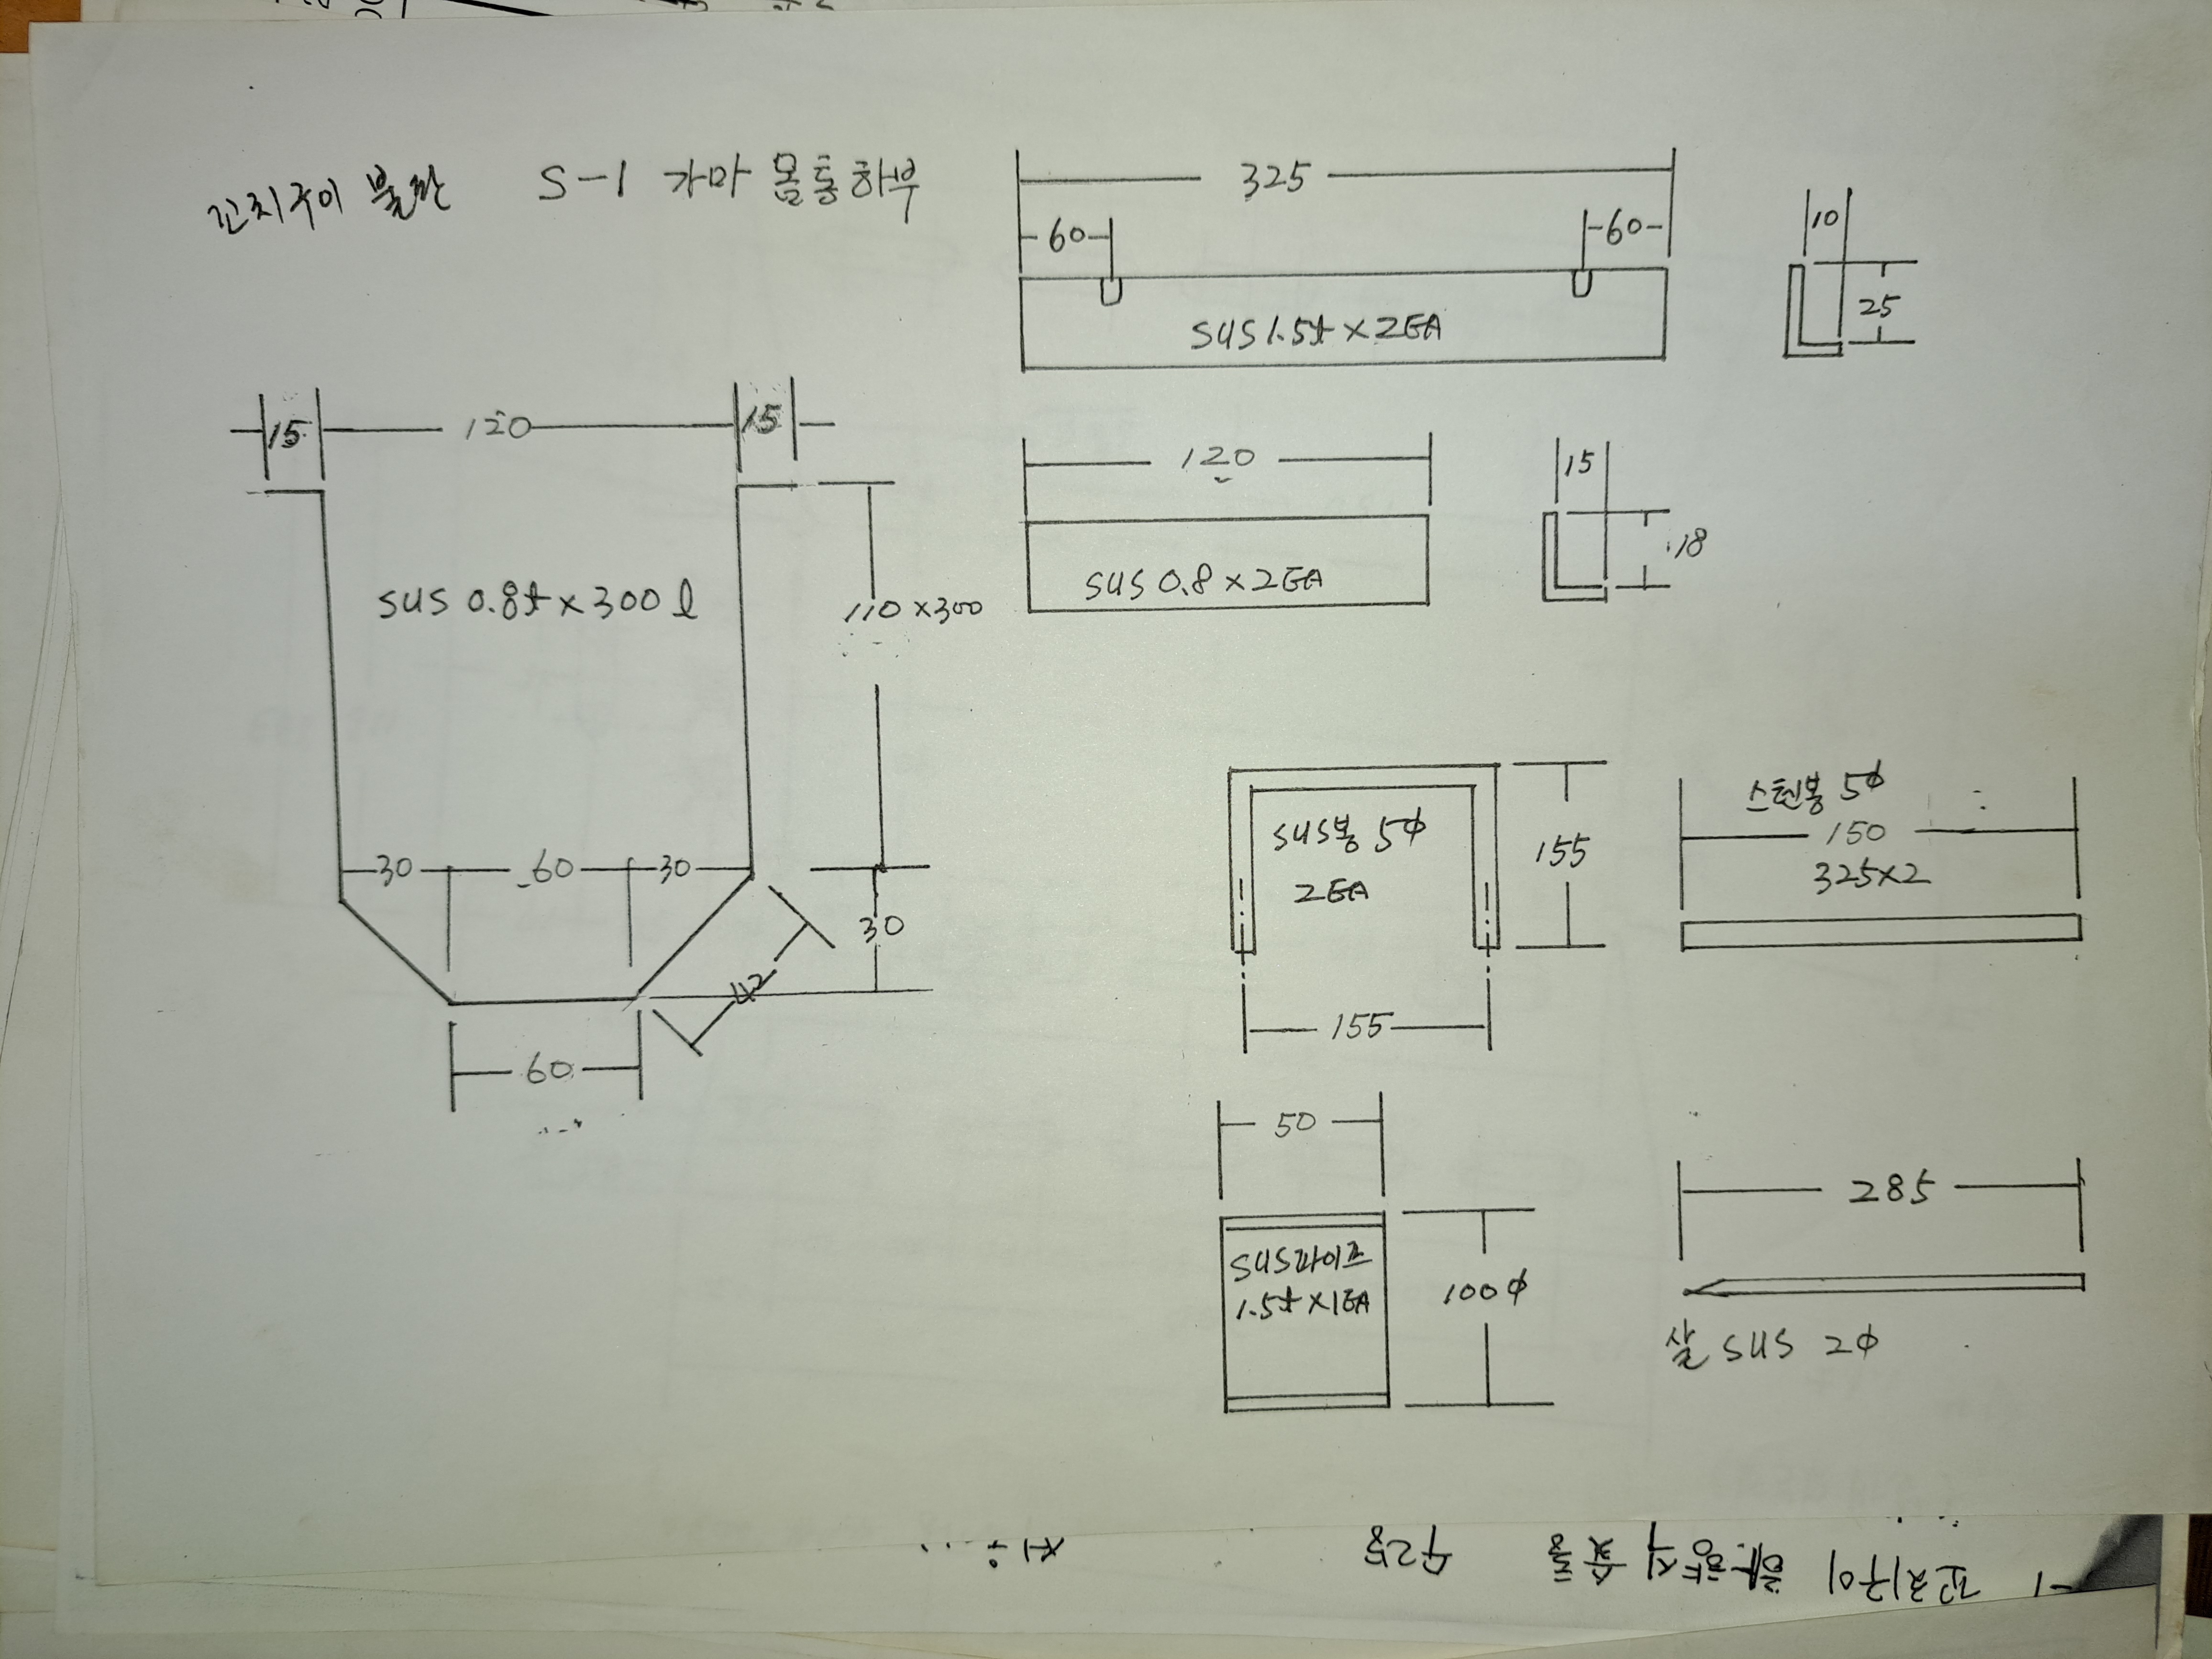 꼬치구이 불판 S-1 가마 몸통하부
325
60 60
10
25
SUS 1.5t x 2EA
15 120 15
120
15
18
SUS 0.8 x 2EA
SUS 0.8t x 300 l
110 x 300
30 60 30
30
42
60
SUS봉 5φ
2EA
155
155
스텐봉 5φ
150
325x2
50
SUS파이프
1.5t x 1EA
100φ
285
살 SUS 2φ
꼬치구이